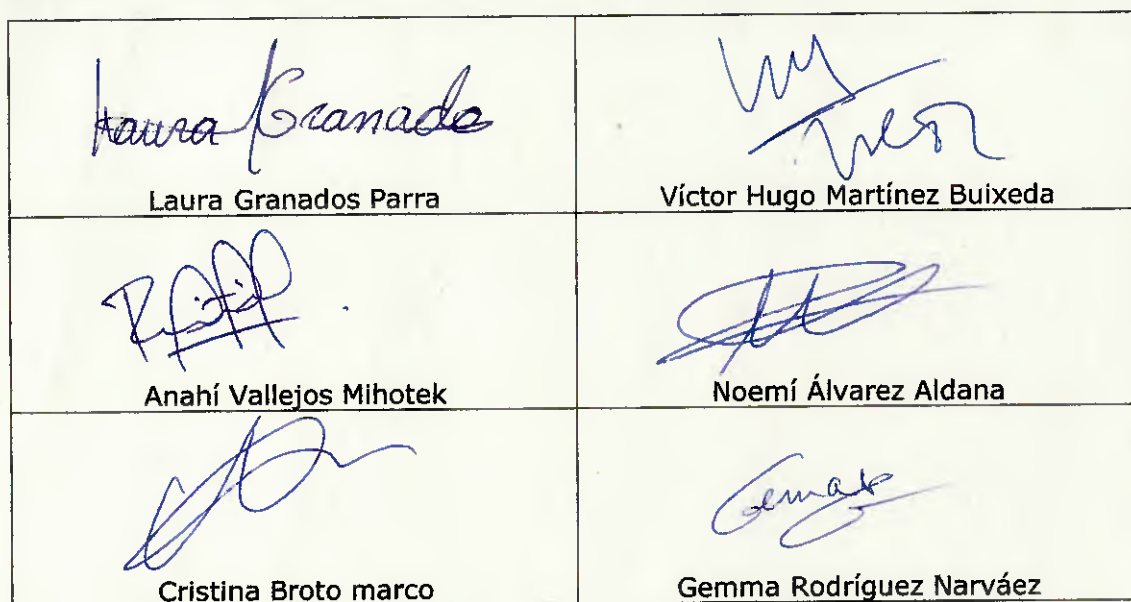 Laura Granados
Laura Granados Parra
Víctor Hugo Martínez Buixeda
Anahí Vallejos Mihotek
Noemí Álvarez Aldana
Cristina Broto marco
Gemma Rodríguez Narváez